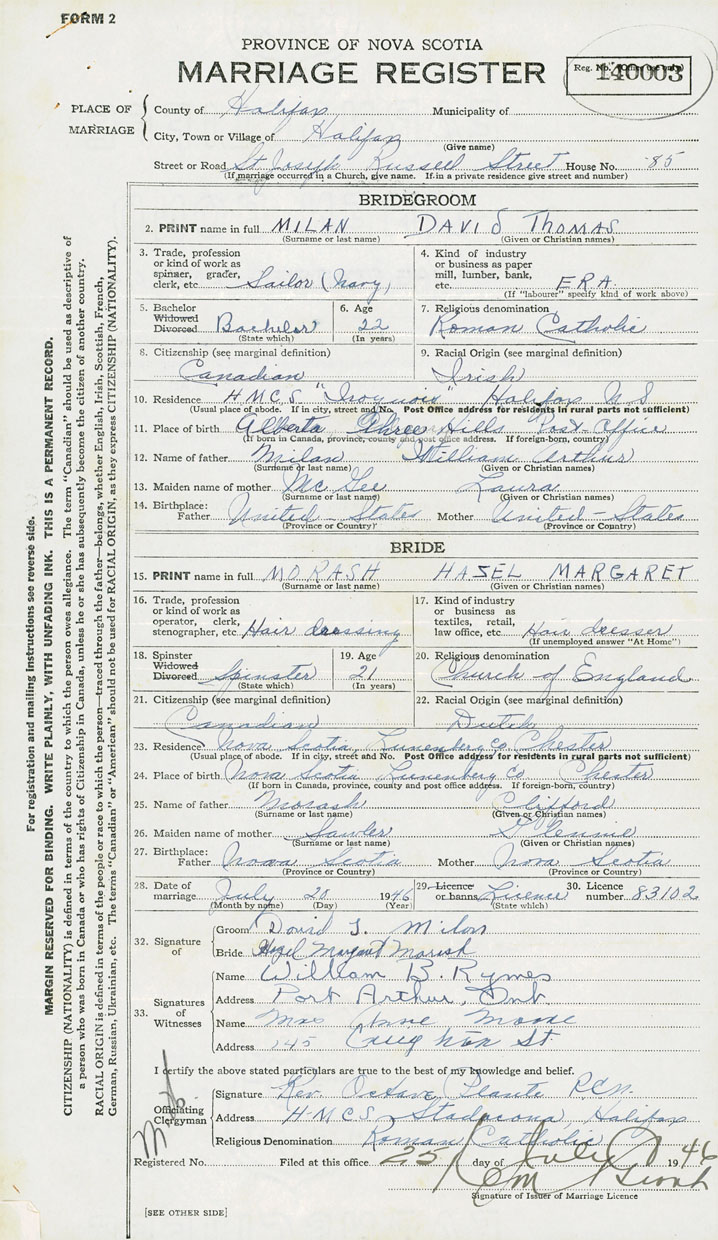 FORM 2
PROVINCE OF NOVA SCOTIA
MARRIAGE REGISTER
Reg. No. (Office use only)
140003
PLACE OF MARRIAGE
County of Halifax Municipality of
City, Town or Village of Halifax
(Give name)
Street or Road St Joseph Russell Street House No. 85
(If marriage occurred in a Church, give name. If in a private residence give street and number)
BRIDEGROOM
2. PRINT name in full MILAN DAVID THOMAS
(Surname or last name) (Given or Christian names)
3. Trade, profession or kind of work as spinner, grader, clerk, etc. Sailor (Navy)
4. Kind of industry or business as paper mill, lumber, bank, etc. E.R.A.
(If "labourer" specify kind of work above)
5. Bachelor Widowed Divorced Bachelor
(State which)
6. Age 22
(In years)
7. Religious denomination
Roman Catholic
8. Citizenship (see marginal definition)
Canadian
9. Racial Origin (see marginal definition)
Irish
10. Residence H.M.C.S. "Iroquois" Halifax N S
(Usual place of abode. If in city, street and No. Post Office address for residents in rural parts not sufficient)
11. Place of birth Alberta Three Hills Post Office
(If born in Canada, province, county and post office address. If foreign-born, country)
12. Name of father Milan William Arthur
(Surname or last name) (Given or Christian names)
13. Maiden name of mother Mc Gee Laura
(Surname or last name) (Given or Christian names)
14. Birthplace: Father United-States Mother United-States
(Province or Country) (Province or Country)
BRIDE
15. PRINT name in full MORASH HASEL MARGARET
(Surname or last name) (Given or Christian names)
16. Trade, profession or kind of work as operator, clerk, stenographer, etc. Hair dressing
17. Kind of industry or business as textiles, retail, law office, etc. Hair dresser
(If unemployed answer "At Home")
18. Spinster Widowed Divorced Spinster
(State which)
19. Age 21
(In years)
20. Religious denomination
Church of England
21. Citizenship (see marginal definition)
Canadian
22. Racial Origin (see marginal definition)
Dutch
23. Residence Nova Scotia Lunenberg Co. Chester
(Usual place of abode. If in city, street and No. Post Office address for residents in rural parts not sufficient)
24. Place of birth Nova Scotia Lunenberg Co Chester
(If born in Canada, province, county and post office address. If foreign-born, country)
25. Name of father Morash Clifford
(Surname or last name) (Given or Christian names)
26. Maiden name of mother Sawler
(Surname or last name) (Given or Christian names)
27. Birthplace: Father Nova Scotia Mother Nova Scotia
(Province or Country) (Province or Country)
28. Date of marriage July 20 1946
(Month by name) (Day) (Year)
29. Licence or banns Licence
(State which)
30. Licence number 83102
32. Signature of
Groom David T. Milan
Bride Hazel Margaret Morash
33. Signatures of Witnesses
Name William B. Rymes
Address Port Arthur, Ont.
Name Mrs Anne Moore
Address 145 St
I certify the above stated particulars are true to the best of my knowledge and belief.
Officiating Clergyman
Signature Rev. Octave Plante RCN.
Address H.M.C.S. Stadacona, Halifax
Religious Denomination Roman Catholic
Registered No. Filed at this office 25 day of July 1946
Signature of Issuer of Marriage Licence
[SEE OTHER SIDE]
For registration and mailing instructions see reverse side.
MARGIN RESERVED FOR BINDING. WRITE PLAINLY, WITH UNFADING INK. THIS IS A PERMANENT RECORD.
CITIZENSHIP (NATIONALITY) is defined in terms of the country to which the person owes allegiance. The term "Canadian" should be used as descriptive of
a person who was born in Canada or who has rights of Citizenship in Canada, unless he or she has subsequently become the citizen of another country.
RACIAL ORIGIN is defined in terms of the people or race to which the person—traced through the father—belongs, whether English, Irish, Scottish, French,
German, Russian, Ukrainian, etc. The terms "Canadian" or "American" should not be used for RACIAL ORIGIN, as they express CITIZENSHIP (NATIONALITY).